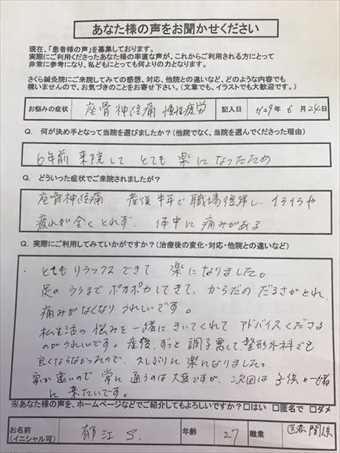 あなた様の声をお聞かせください
現在、「患者様の声」を募集しております。
実際にご利用くださったあなた様の率直な声が、これからご利用される方にとって
非常に参考になり、私どもにとっても何よりの力となります。
さくら鍼灸院にご来院してみての感想、対応、他院との違いなど、どのような内容でも
構いませんので、お気づきのことをお寄せ下さい。(文章でも、イラストでも大歓迎です。)
お悩みの症状 座骨神経痛 慢性疲労 記入日 H29年 6月 24日
Q. 何が決め手となって当院を選びましたか?(他院でなく、当院を選んでくださった理由)
6年前 来院して とても 楽になったため
Q. どういった症状でご来院されましたか?
座骨神経痛 産後半年で職場復帰し、イライラや
疲れが全くとれず、体中に痛みがある
Q. 実際にご利用してみていかがですか?(治療後の変化・対応・他院との違いなど)
とてもリラックスできて 楽になりました。
足のうらまでポカポカしてきて、からだのだるさがとれ
痛みがなくなりうれしいです。
私生活の悩みを一緒にきいてくれてアドバイスくださる
のがうれしいです。産後、ずっと調子悪くて整形外科でも
良くならなかったので、久しぶりに楽になりました。
家が遠いので常に通うのは大変ですが、次回は子供と一緒
に来たいです。
※あなた様の声を、ホームページなどでご紹介してもよろしいですか?□はい □匿名で □ダメ
お名前 郁江 S. 年齢 27 職業 医療関係
(イニシャル可)